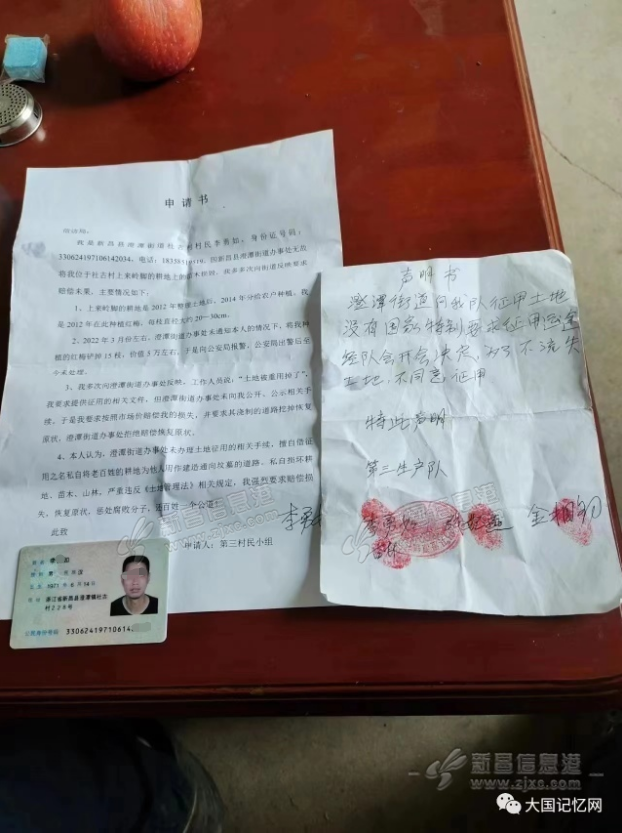 申请书
我是新昌县澄潭街道社古村村民李勇如,身份证号码:
330624197106142034,电话:
将我位于社古村上来岭脚的耕地上的苗木铲掉,我多多次向街道反映要求
赔偿未果。主要情况如下:
1、上来岭脚的耕地是2012年整理土地后,2014年分给农户种植。我
是2012年在此种植红梅,每株直径大约20—30cm。
2、2022年3月份左右,澄潭街道办事处未通知本人的情况下,将我种
植的红梅铲掉15棵,价值5万左右。于是向公安局报警,公安局出警后至
今未处理。
3、我多次向澄潭街道办事处反映,工作人员说,“土地被重用掉了”,我
要求提供征用的相关文件,但澄潭街道办事处未向我公开、公示相关手
续,于是我要求按照市场价赔偿我的损失,并要求其浇制的道路挖掉恢复
原状,澄潭街道办事处拒绝赔偿恢复原状。
4、本人认为,澄潭街道办事处未办理土地征用的相关手续,擅自借征
用之名私自将老百姓的耕地为他人用作建造通向坟墓的道路。私自毁坏耕
地、苗木、山林,严重违反《土地管理法》相关规定,我强烈要求赔偿损
失、恢复原状、惩处腐败分子,还百姓一个公道!
此致
申请人:第三村民小组
声明书
澄潭街道向我队征用土地
没有国家特别要求征用
经队会开会决定,为了不流失
土地,不同意征用
特此声明
第三生产队
浙江省新昌县澄潭镇社古
村228号
公民身份号码 33062419710614
新昌信息港
www.zjxc.com
大国记忆网